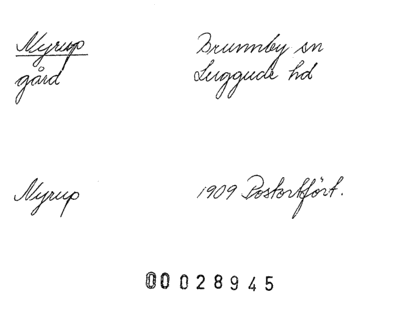 Nyrup Brunnby sn
gård Luggude hd
Nyrup 1909 Postortfört.
00028945